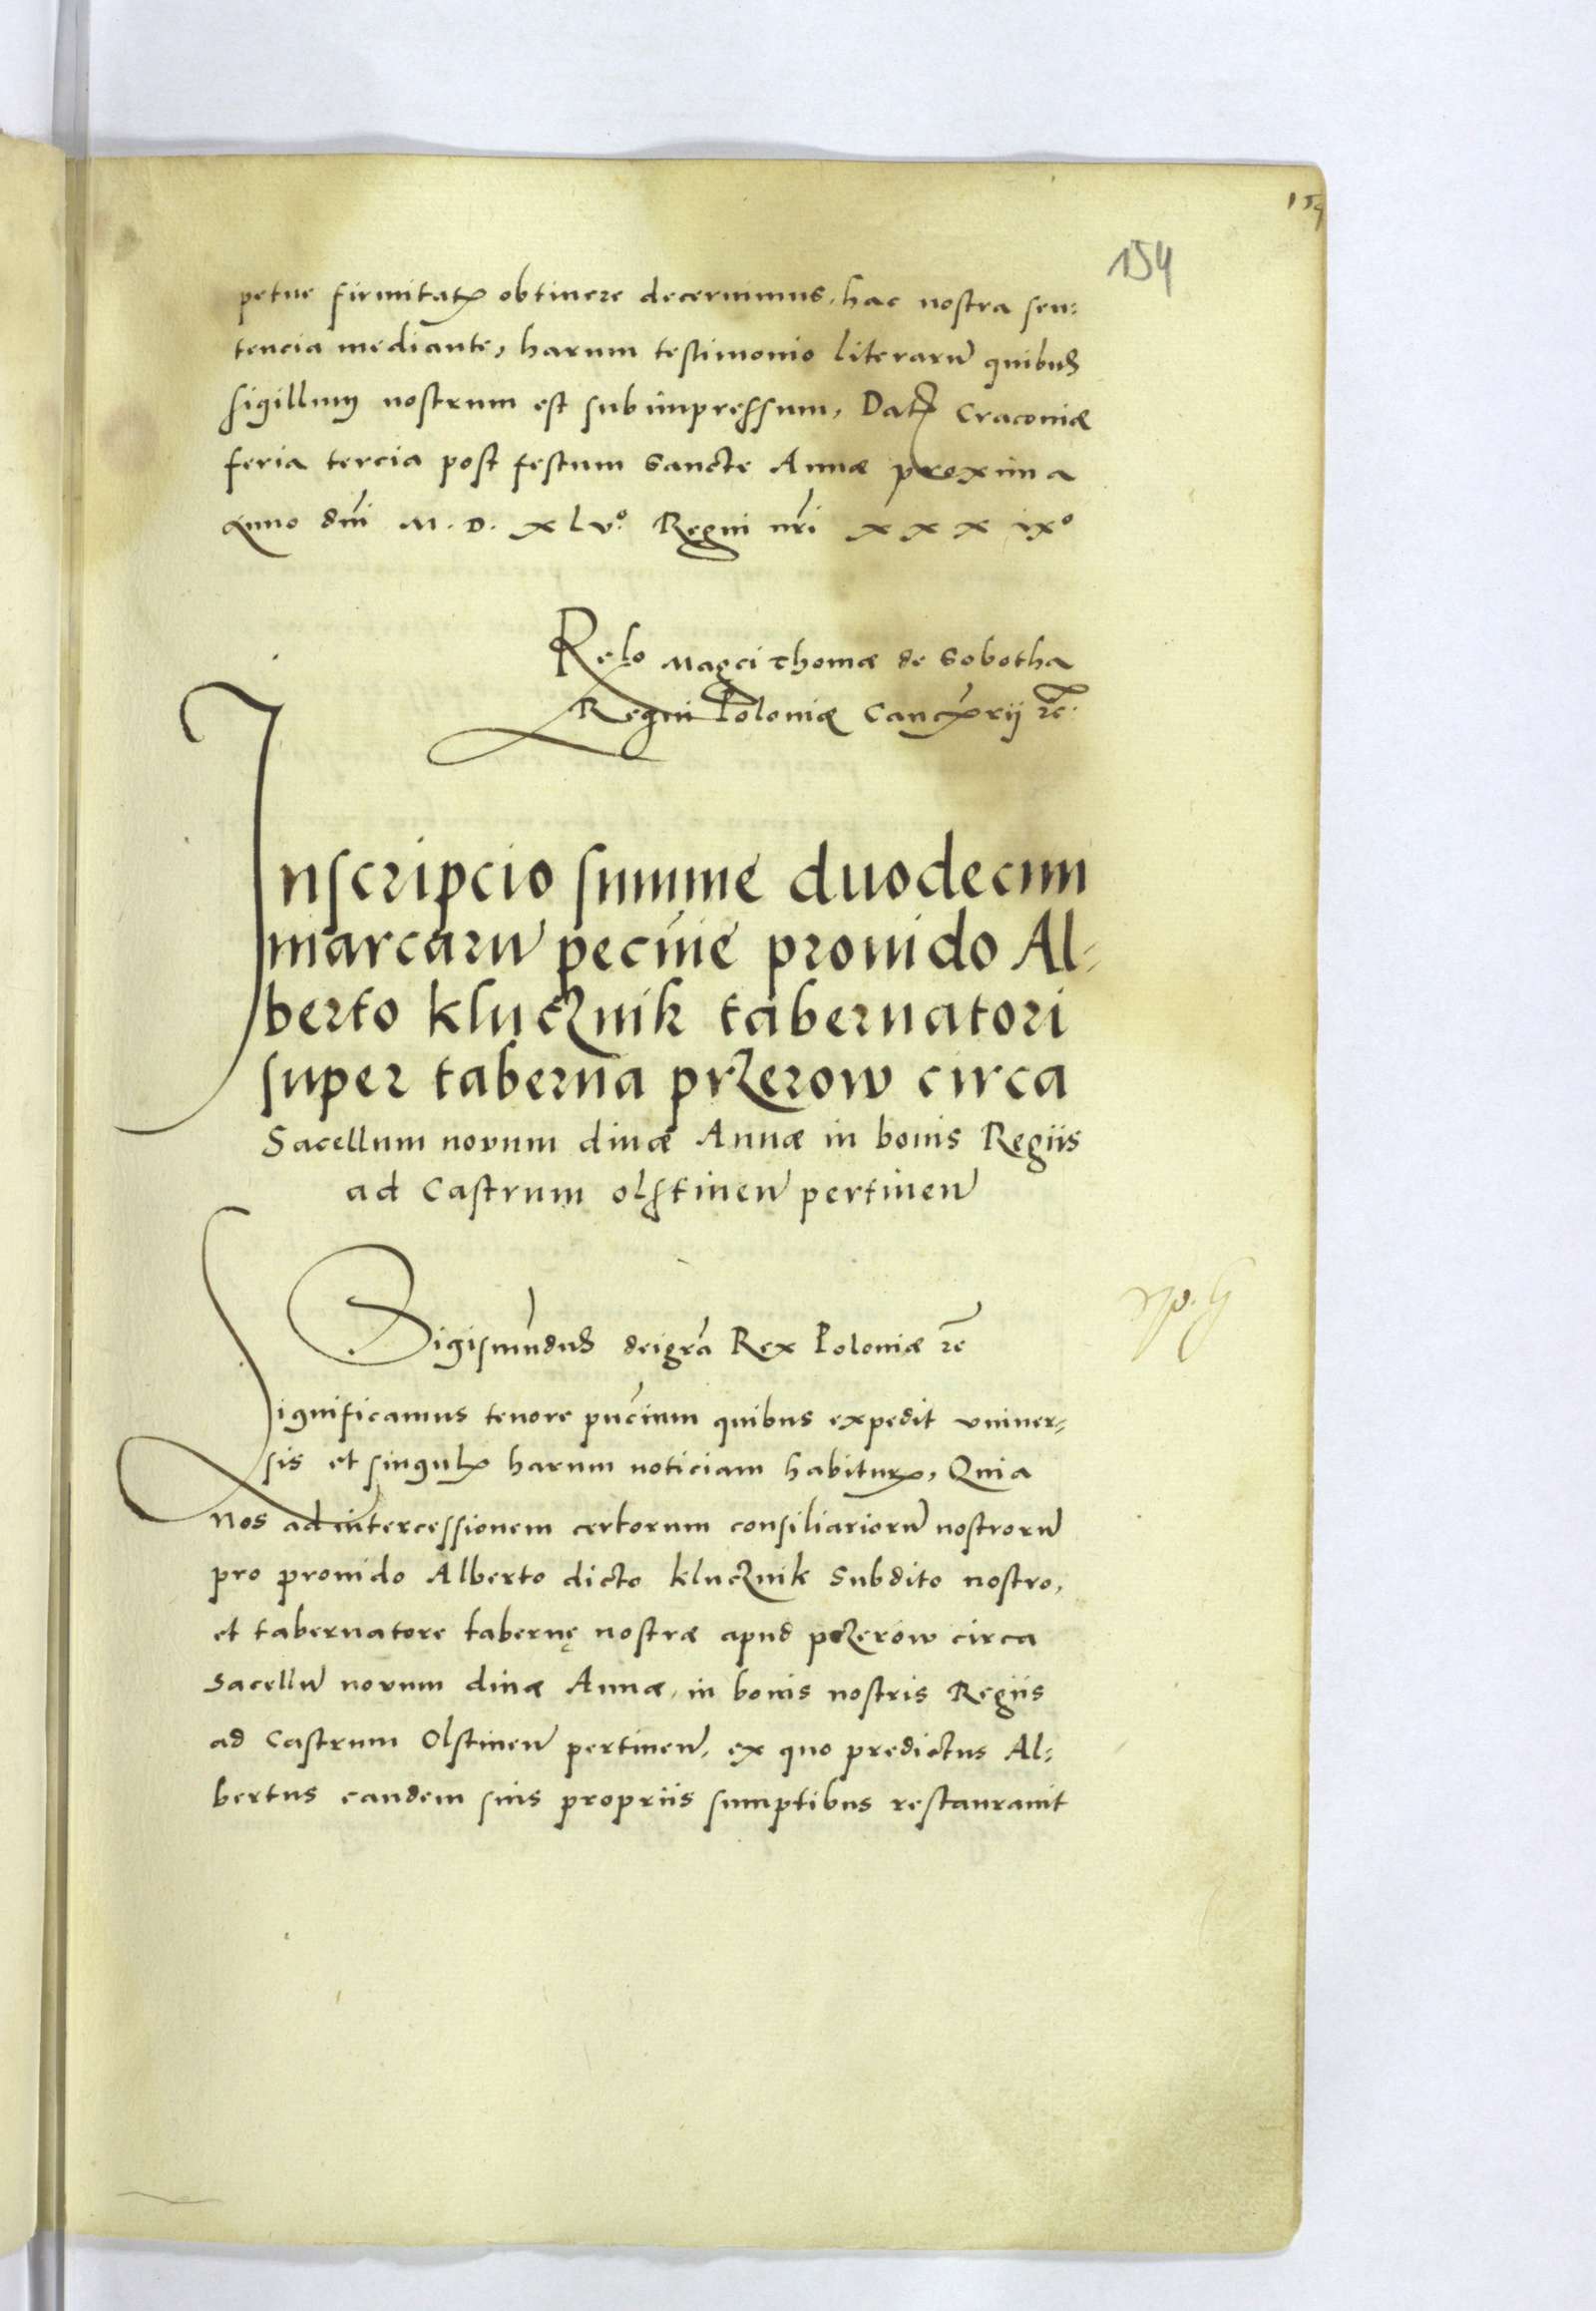 154
petue firmitatꝭ obtinere decernimus, hac nostra sen:
tencia mediante, harum testimonio literarũ quibus
sigillum nostrum est subimpressum, Datꝭ Cracoviæ
feria tercia post festum Sancte Annæ proxima
Anno dñi M. D. xlvº. Regni nr̃i xxxixº
Relo Magci Thomæ de Sobotha
Regni Poloniæ Cancꝭrij ꝛc̃.
Inscripcio summe duodecim
marcarũ pecũie prouido Al-
berto klucznik tabernatori
super taberna przerow circa
Sacellum novum diuæ Annæ in bonis Regiis
ad Castrum olstinen̄ pertinen̄
Sigismũdus dei gr̃a Rex Poloniæ ꝛc̃
Significamus tenore pñcium quibus expedit vniuer-
sis et singulꝭ harum noticiam habiturꝭ, Quia
Nos ad intercessionem certorum consiliariorũ nostrorũ
pro prouido Alberto dicto klucznik Subdito nostro,
et tabernatore tabernę nostræ apud przerow circa
Sacellũ novum diuæ Annæ, in bonis nostris Regiis
ad Castrum Olstinen̄ pertinen̄, ex quo predictus Al:
bertus eandem suis propriis sumptibus restaurauit